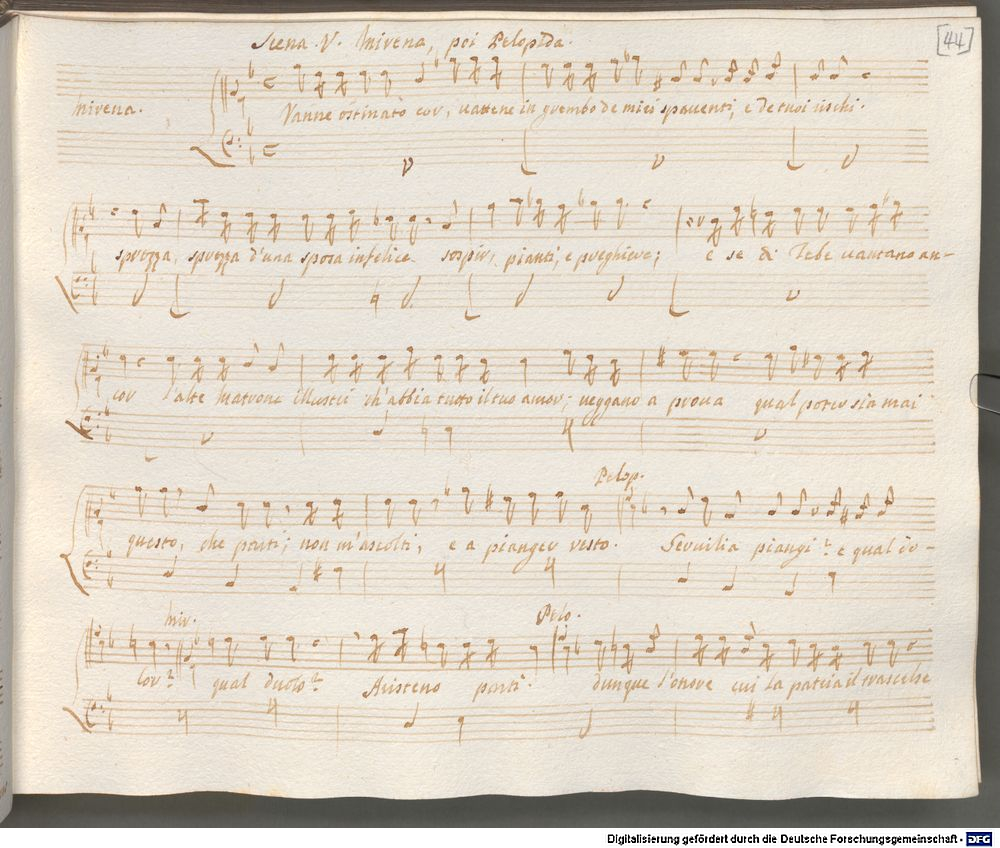 [44]
Scena V. Mirena, poi Pelopida.
Mirena.
Vanne ostinato cor, vattene in grembo de miei spaventi, e de tuoi rischi.
sprezza, sprezza d'una sposa infelice sospir, pianti, e preghiere; e se di Tebe vantano an-
cor l'alte Matrone illustri ch'abbia tutto il tuo amor; veggano a prova qual poter sia mai
Pelop.
questo, che parti; non m'ascolti, e a pianger resto. piangi? e qual do-
Mir. Pelo.
lor? qual duolo? parti. dunque l'onore cui la patria il trascelse
Digitalisierung gefördert durch die Deutsche Forschungsgemeinschaft - DFG